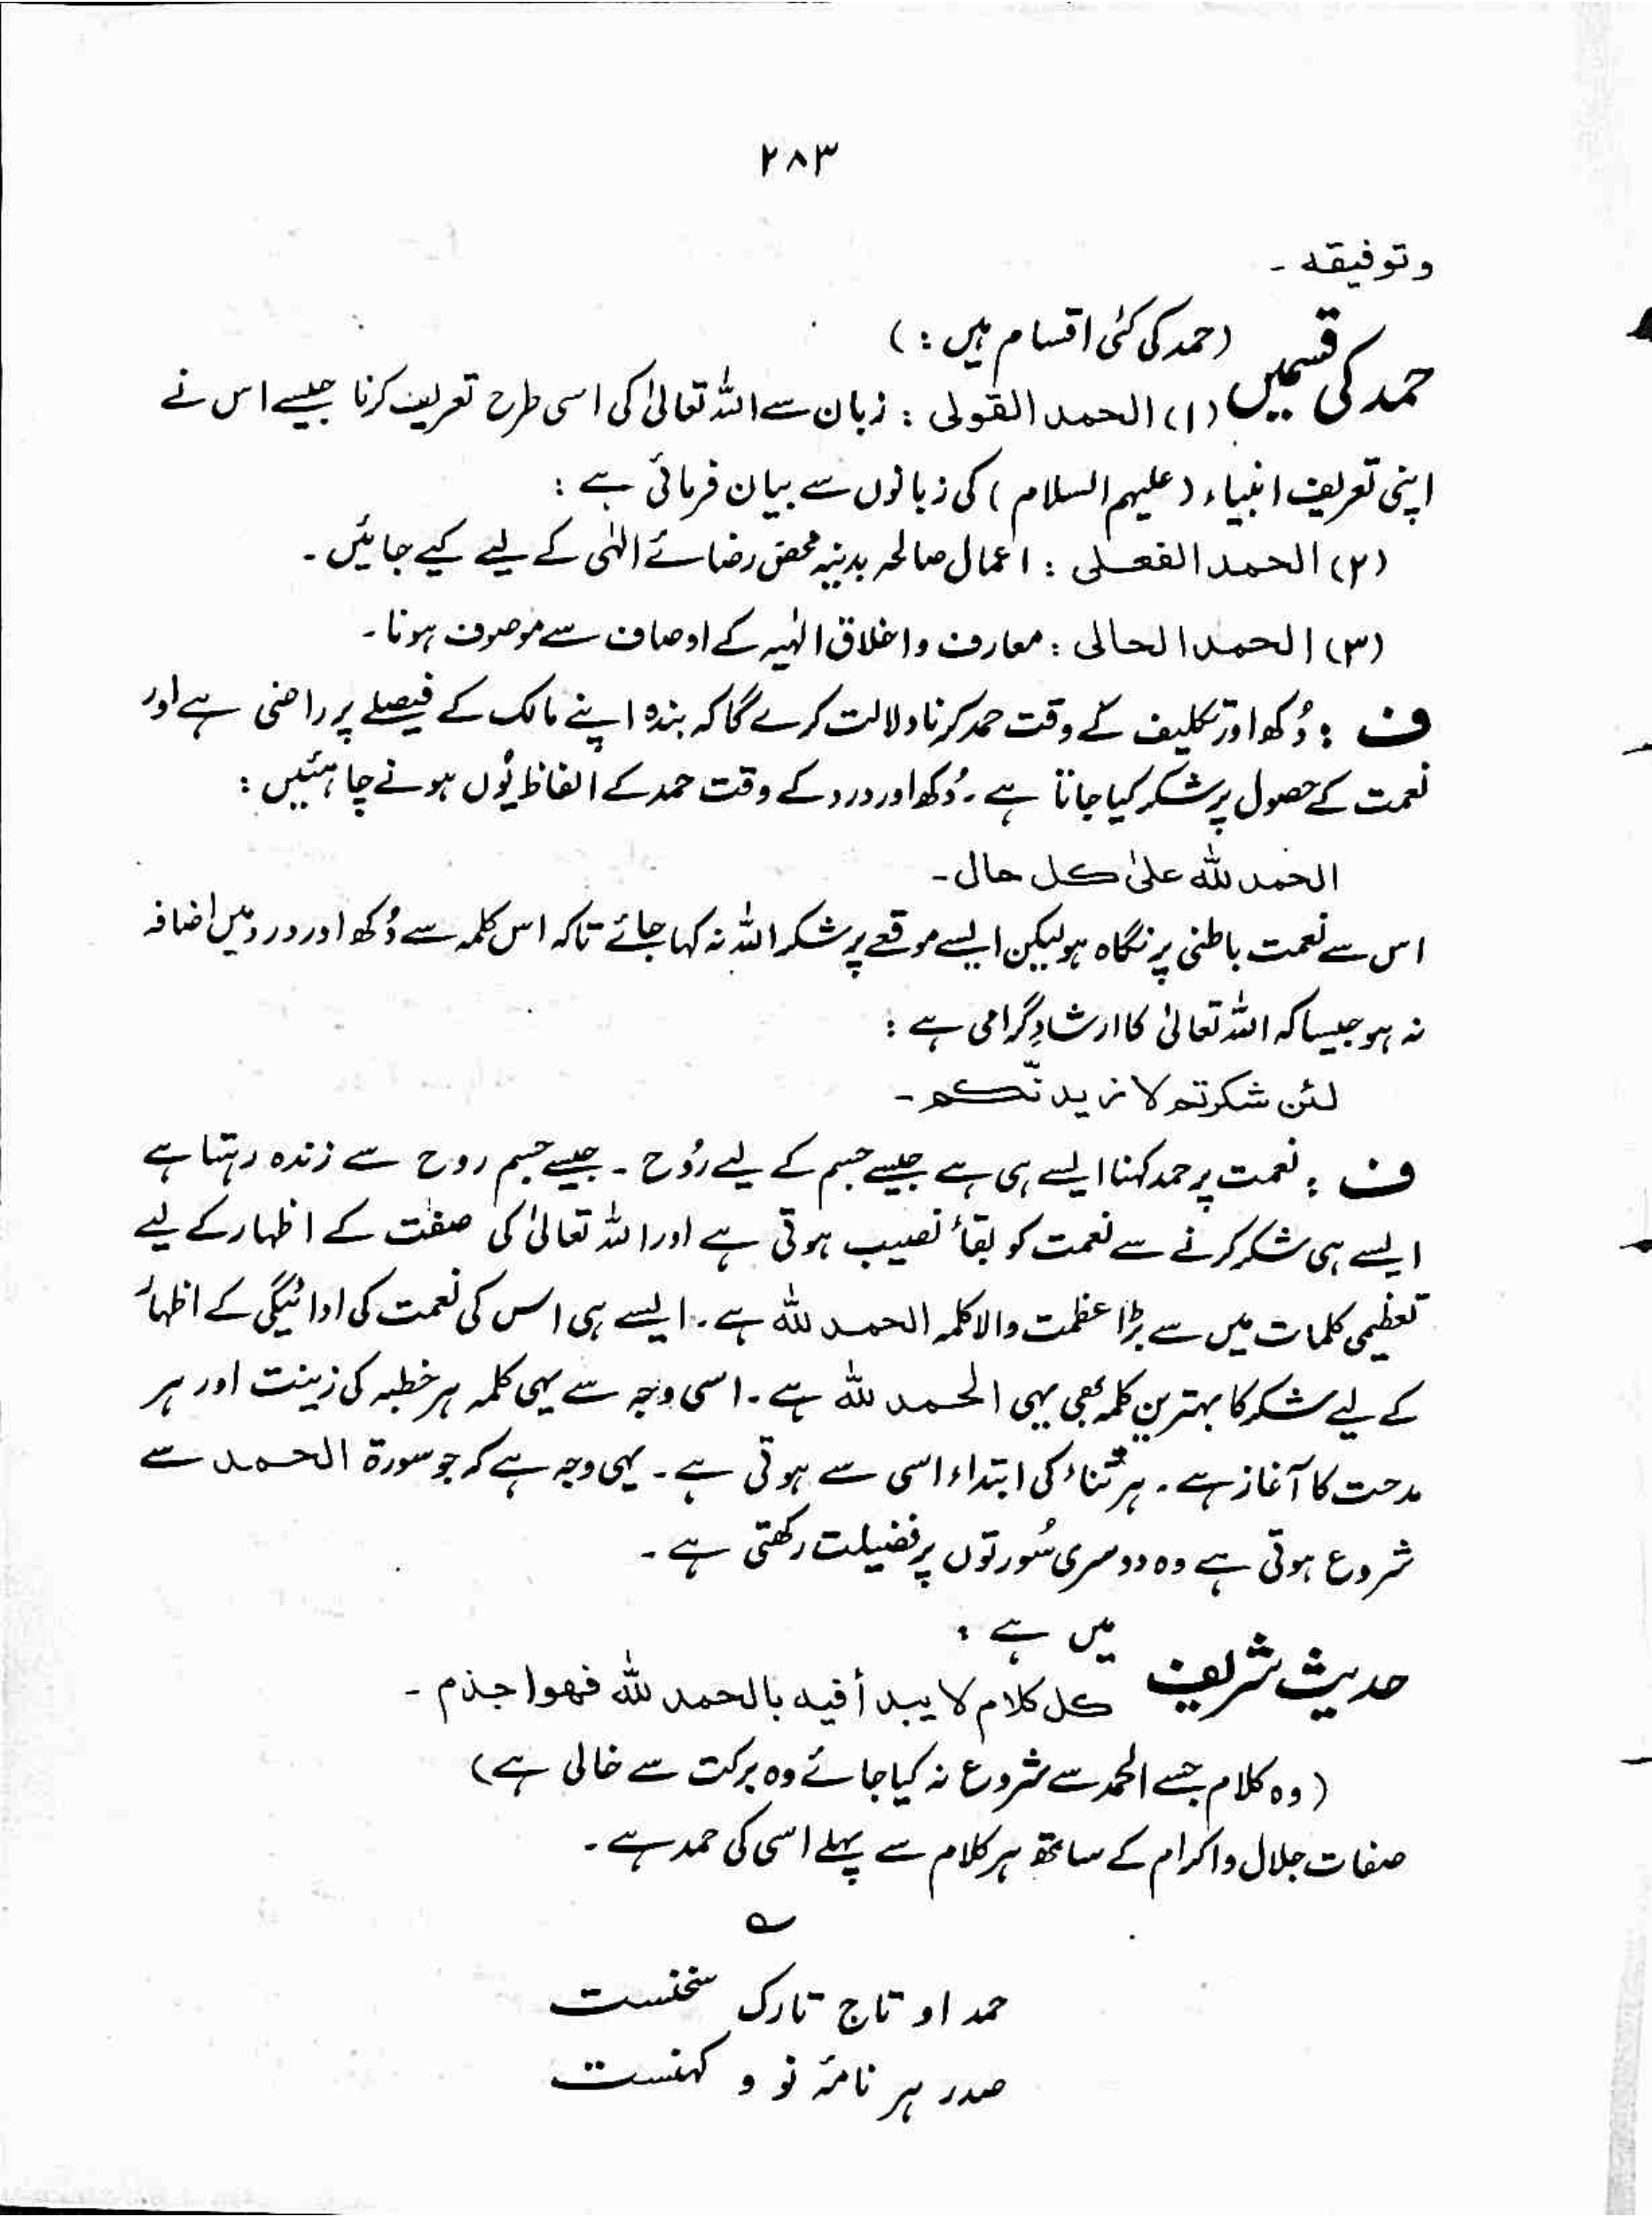 ۲۸۳
وتوفیقہ ۔
حمد کی قسمیں (حمد کی کئی اقسام ہیں :)
(۱) الحمد القولی : زبان سے اللہ تعالیٰ کی اسی طرح تعریف کرنا جیسے اس نے
اپنی تعریف انبیاء (علیہم السلام) کی زبانوں سے بیان فرمائی ہے :
(۲) الحمد الفعلی : اعمال صالحہ بدنیہ محض رضائے الٰہی کے لیے کیے جائیں ۔
(۳) الحمد الحالی : معارف و اخلاق الٰہیہ کے اوصاف سے موصوف ہونا ۔
ف : دُکھ اور تکلیف کے وقت حمد کرنا دلالت کرے گا کہ بندہ اپنے مالک کے فیصلے پر راضی ہے اور
نعمت کے حصول پر شکر کیا جاتا ہے ۔ دُکھ اور درد کے وقت حمد کے الفاظ یُوں ہونے چاہئیں :
الحمد للہ علیٰ کل حال ۔
اس سے نعمت باطنی پر نگاہ ہو لیکن ایسے موقعے پر شکر اللہ نہ کہا جائے تاکہ اس کلمہ سے دُکھ اور درد میں اضافہ
نہ ہو جیسا کہ اللہ تعالیٰ کا ارشادِ گرامی ہے :
لئن شکرتم لازیدنّکم ۔
ف : نعمت پر حمد کہنا ایسے ہی ہے جیسے جسم کے لیے رُوح ۔ جیسے جسم روح سے زندہ رہتا ہے
ایسے ہی شکر کرنے سے نعمت کو بقأ نصیب ہوتی ہے اور اللہ تعالیٰ کی صفت کے اظہار کے لیے
تعظیمی کلمات میں سے بڑا عظمت والا کلمہ الحمد للہ ہے ۔ ایسے ہی اس کی نعمت کی ادائیگی کے اظہار
کے لیے شکر کا بہترین کلمہ بھی یہی الحمد للہ ہے ۔ اسی وجہ سے یہی کلمہ ہر خطبہ کی زینت اور ہر
مدحت کا آغاز ہے ۔ ہر ثناء کی ابتداء اسی سے ہوتی ہے ۔ یہی وجہ ہے کہ جو سورۃ الحمد سے
شروع ہوتی ہے وہ دوسری سُورتوں پر فضیلت رکھتی ہے ۔
حدیث شریف میں ہے :
کل کلام لا یبدأ فیہ بالحمد للہ فھوا جذم ۔
(وہ کلام جسے الحمد سے شروع نہ کیا جائے وہ برکت سے خالی ہے)
صفات جلال و اکرام کے ساتھ ہر کلام سے پہلے اسی کی حمد ہے ۔
؎
حمد او تاج تارک سخنست
صدر ہر نامۂ نو و کہنست